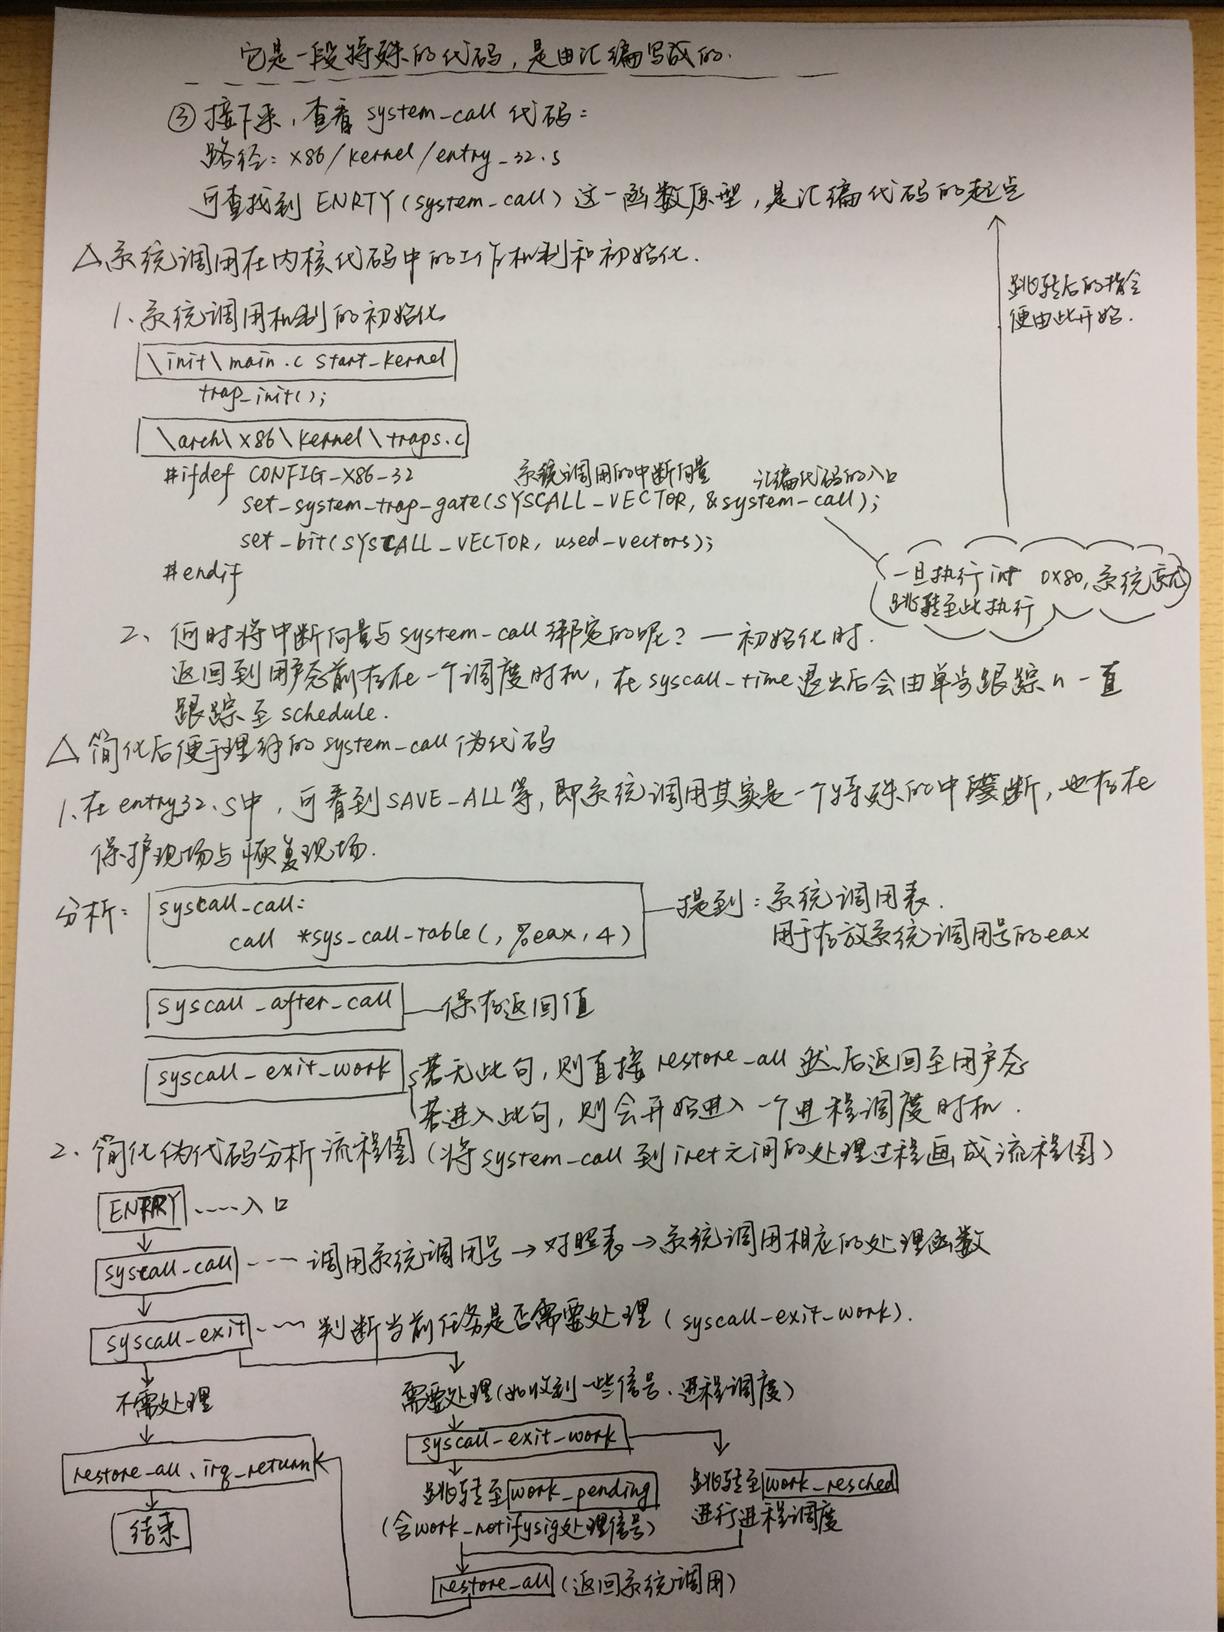 它是一段特殊的代码，是由汇编写成的.
③接下来，查看system_call代码：
路径：x86/kernel/entry_32.s
可查找到ENRTY(system_call)这一函数原型，是汇编代码的起点
跳转后的指令
便由此开始.
△系统调用在内核代码中的工作机制和初始化.
1、系统调用机制的初始化
\init\main.c start_kernel
trap_init();
\arch\x86\kernel\traps.c
#ifdef CONFIG_X86_32
系统调用的中断向量 汇编代码的入口
set_system_trap_gate(SYSCALL_VECTOR, &system_call);
set_bit(SYSCALL_VECTOR, used_vectors);
#endif
一旦执行int 0x80,系统就
跳转至此执行
2、何时将中断向量与system_call绑定的呢？—初始化时.
返回到用户态前存在一个调度时机，在syscall_time退出后会由单步跟踪n一直
跟踪至schedule.
△简化后便于理解的system_call伪代码
1、在entry32.S中，可看到SAVE_ALL等，即系统调用其实是一个特殊的中断，也存在
保护现场与恢复现场.
分析：
syscall_call:
call *sys_call_table(,%eax,4)
提到：系统调用表.
用于存放系统调用号的eax
syscall_after_call—保存返回值
syscall_exit_work
若无此句，则直接restore_all然后返回至用户态
若进入此句，则会开始进入一个进程调度时机.
2、简化伪代码分析流程图(将system_call到iret之间的处理过程画成流程图)
ENTRY ……入口
syscall_call ---调用系统调用号→对照表→系统调用相应的处理函数
syscall_exit ---判断当前任务是否需要处理(syscall_exit_work).
不需处理
需要处理(如收到一些信号、进程调度)
syscall_exit_work
restore_all、irq_return
跳转至work_pending
(含work_notifysig处理信号)
跳转至work_resched
进行进程调度
结束
restore_all(返回系统调用)